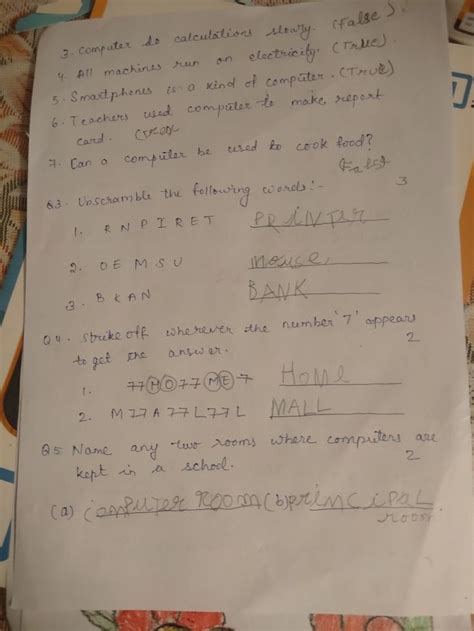 3. Computer do calculations slowly. (False).
4. All machines run on electricity. (True).
5. Smartphones is a kind of computer. (True)
6. Teachers used computer to make report
card.
7. Can a computer be used to cook food?
3
Q3. Unscramble the following words:-
1. RNPIRET PRiNTer
2. OEMSU mouse
3. BKAN BANK
Q4. Strike off wherever the number '7' appears
to get the answer. 2
1. 77HO77ME7 HOMe
2. M77A77L77L MALL
Q5. Name any two rooms where computers are
kept in a school. 2
(a) Computer ROOM (b) PrinciPAL
room